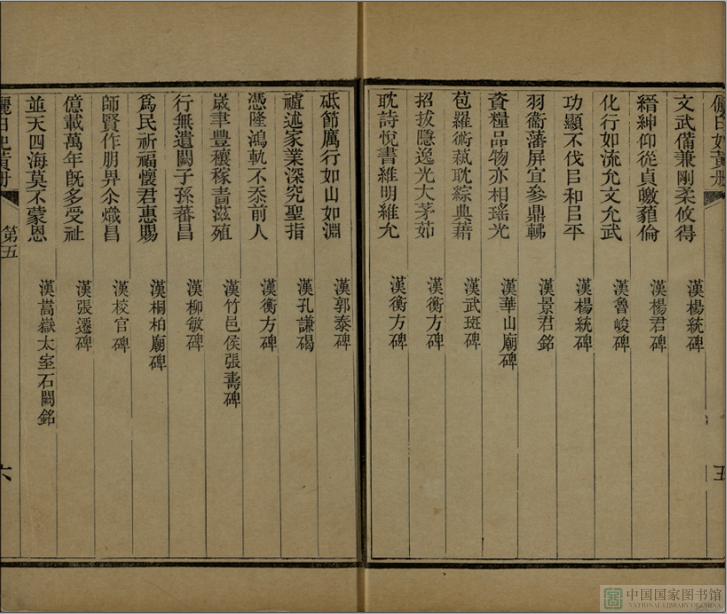 五
文武備兼剛柔攸得 漢楊統碑
縉紳仰從貞皦倫 漢楊君碑
化行如流允文允武 漢魯峻碑
功顯不伐㠯和㠯平 漢楊統碑
羽衞藩屏宜參鼎鬴 漢景君銘
資糧品物亦相瑤光 漢華山廟碑
苞羅術蓺耽綜典藉 漢武斑碑
招拔隱逸光大茅茹 漢衡方碑
耽詩悅書維明維允 漢衡方碑
砥節厲行如山如淵 漢郭泰碑
述家業深究聖指 漢孔謙碣
憑隆鴻軌不忝前人 漢衡方碑
歲聿豐穰稼嗇滋殖 漢竹邑侯張壽碑
行無遺闕子孫蕃昌 漢柳敏碑
爲民祈福懷君惠賜 漢桐柏廟碑
師賢作朋畀尒熾昌 漢校官碑
億載萬年旣多受祉 漢張遷碑
並天四海莫不蒙恩 漢嵩嶽太室石闕銘
第五
六
中国国家图书馆
NATIONAL LIBRARY OF CHINA